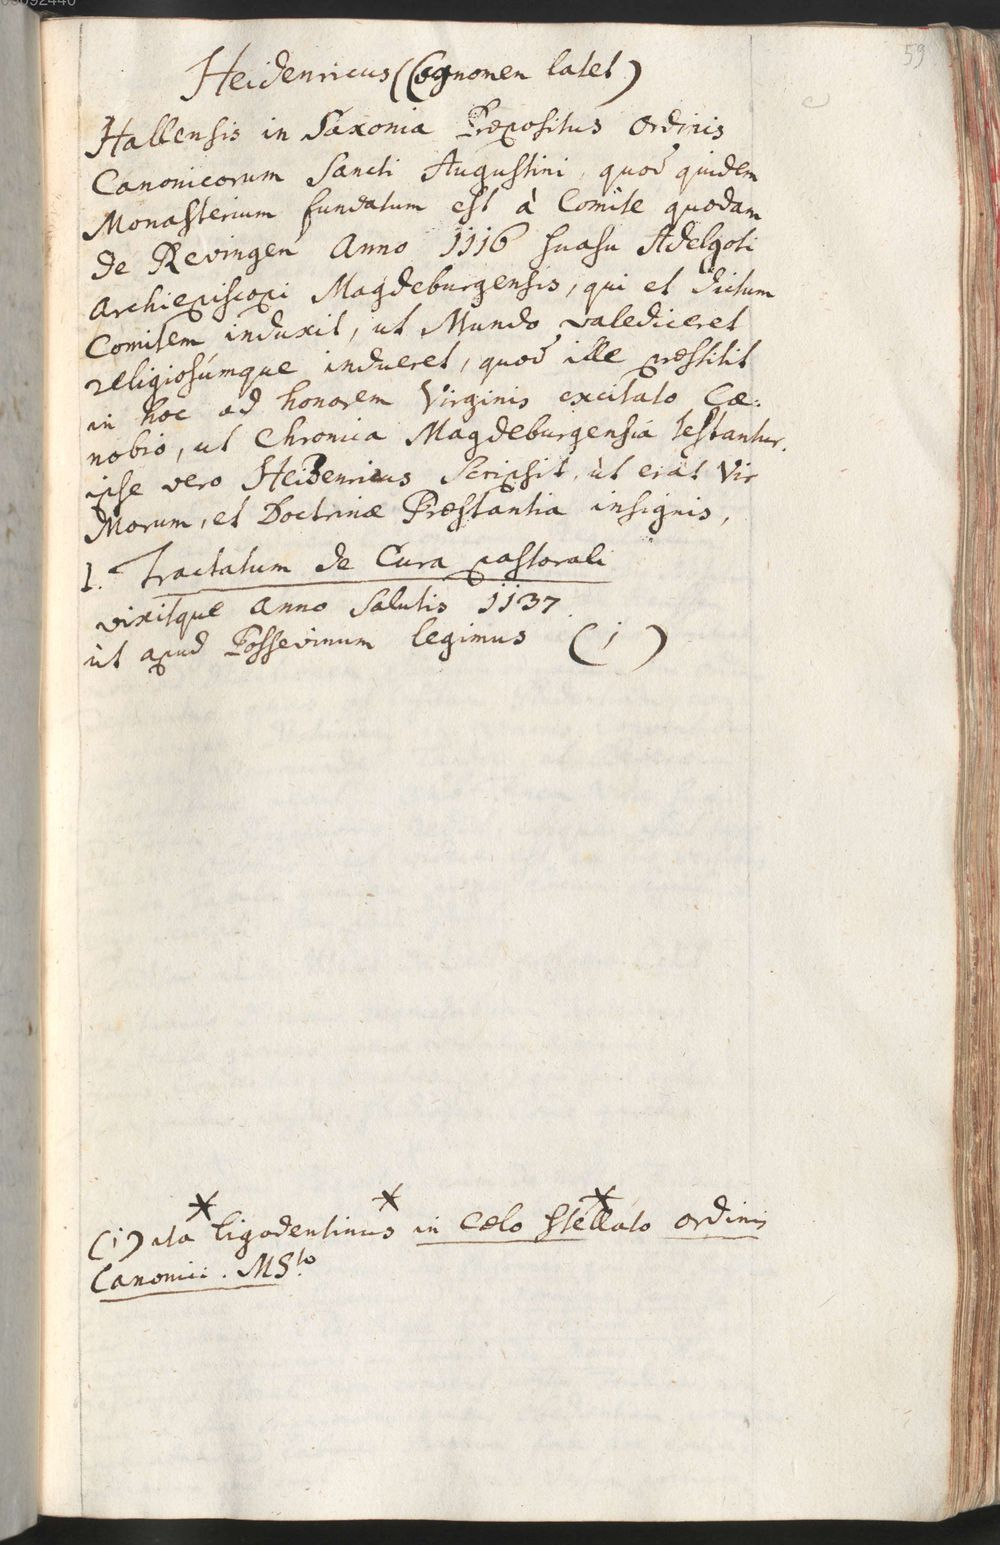 59
Heidenricus (Cognomen latet)
Hallensis in Saxonia Præpositus Ordinis
Canonicorum Sancti Augustini, quod quidem
Monasterium fundatum est à Comite quodam
de Revingen Anno 1116 suasu Adelgoti
Archiepiscopi Magdeburgensis, qui et dictum
Comitem induxit, ut Mundo valediceret
religiosúmque indueret, quod ille præstitit
in hoc ad honorem Virginis excitato Cœ:
nobio, ut Chronica Magdeburgensia testantur.
ipse vero Heidenricus Scripsit, ùt erat Vir
Morum, et Doctrinæ Præstantia insignis,
1. Tractatum de Cura pastorali
vixitque Anno Salutis 1137
ùt apud Possevinum legimus (i)
(i) ita ligodentinus in Cælo stellato ordinis
Canonici. MSto.